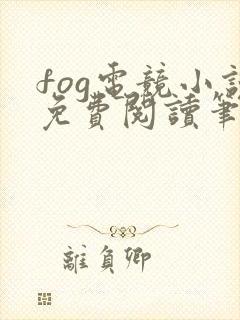 fog電競小說
免費閱讀筆
離負卿